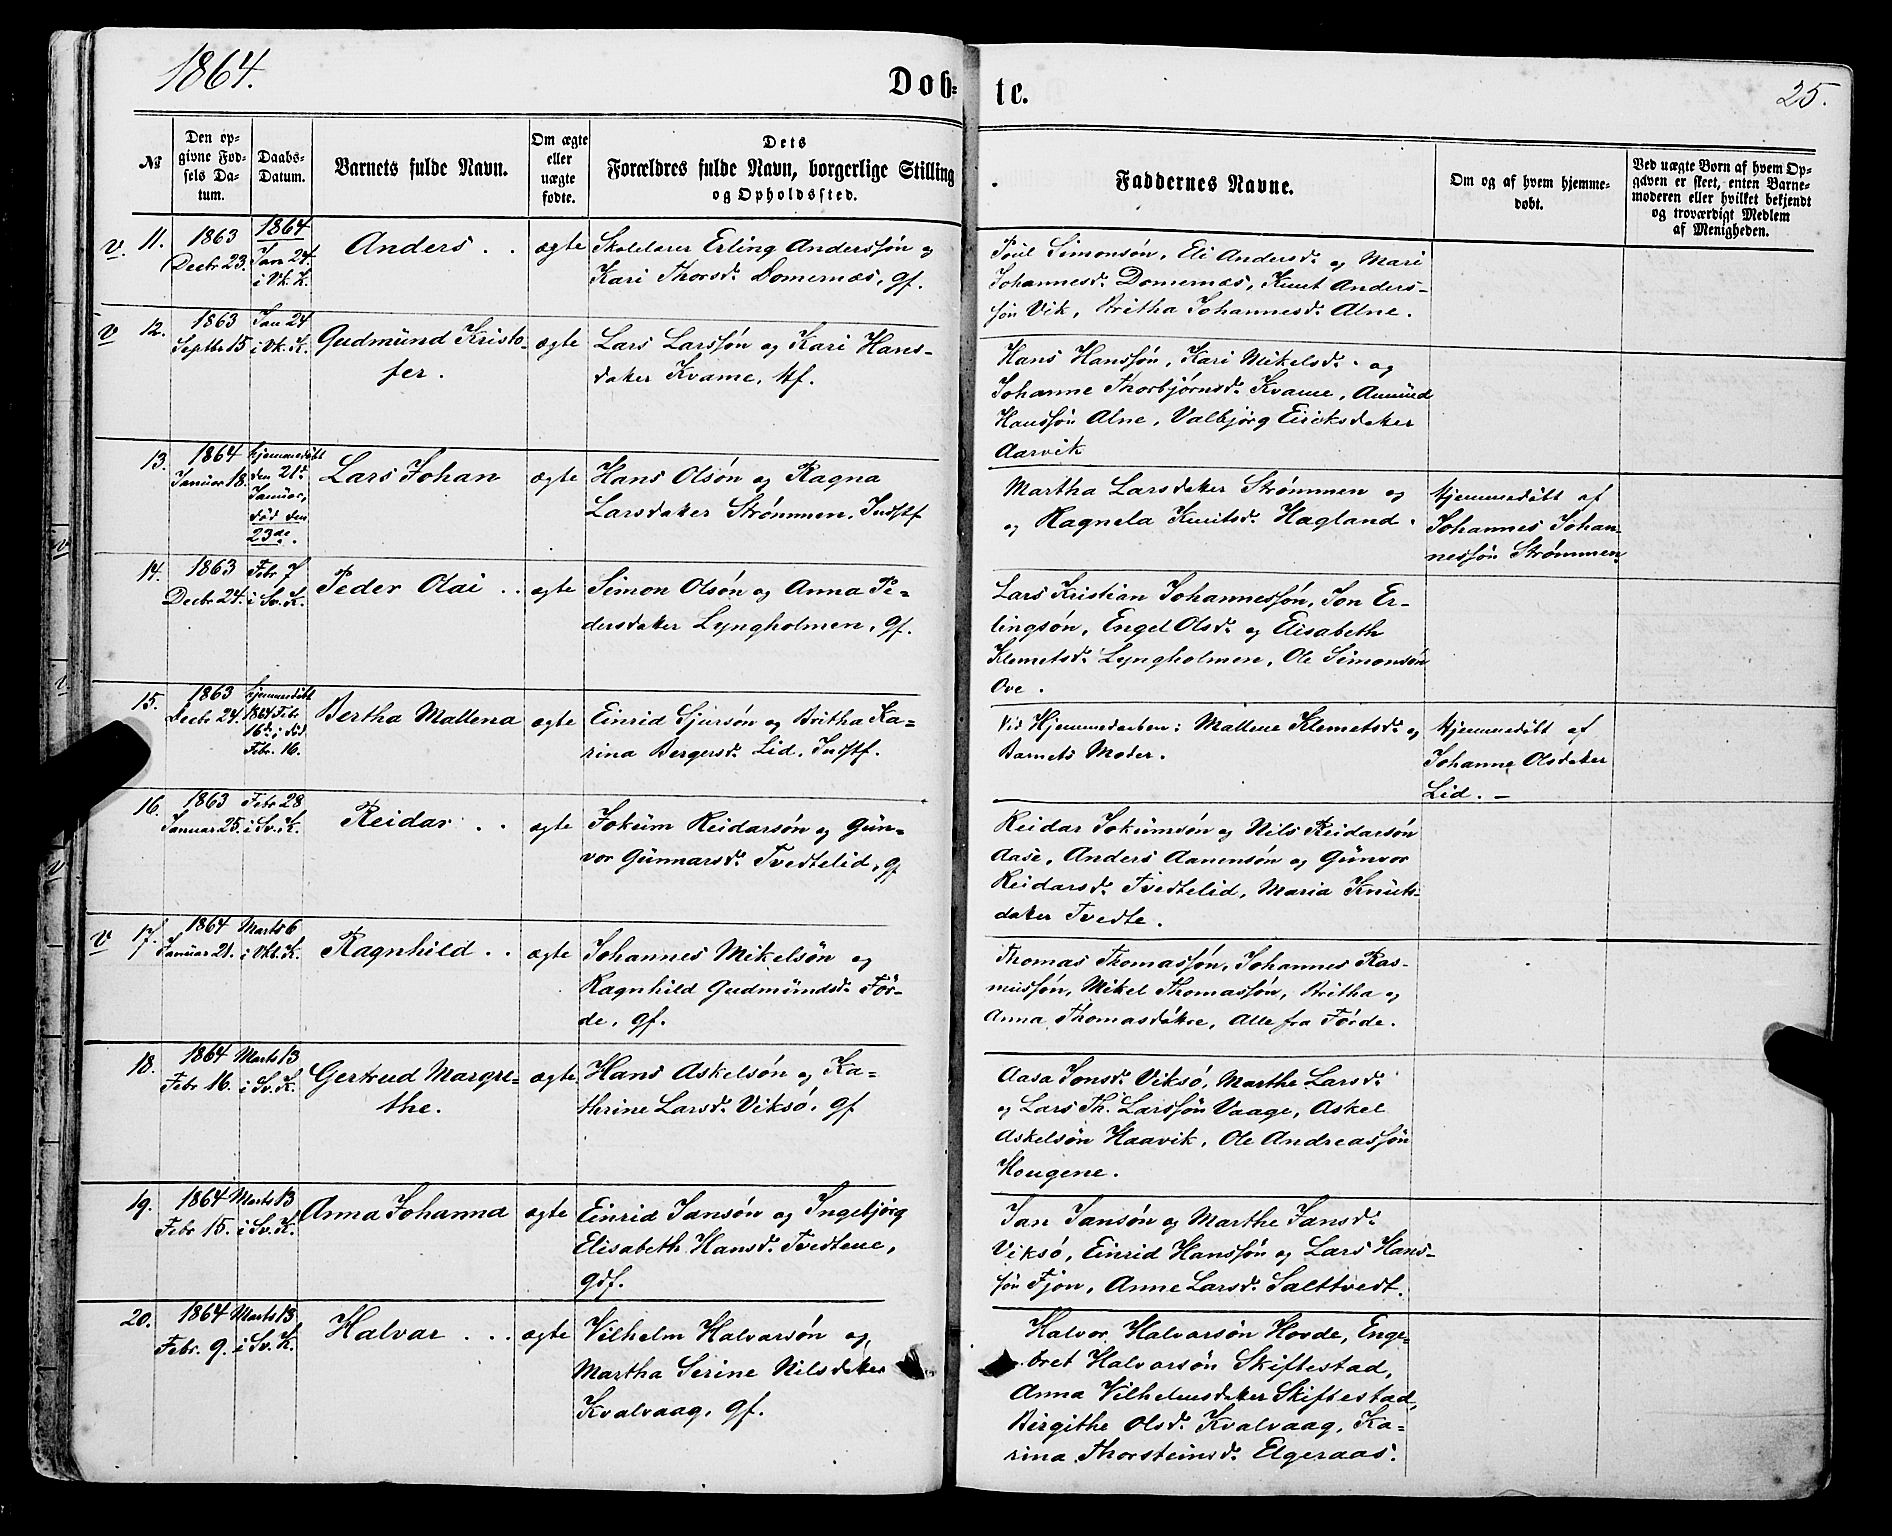 1864.
Døb=
te.
25.
№
Den op=
givne Fød=
sels Da=
tum.
Daabs=
Datum.
Barnets fulde Navn.
Om ægte
eller
uægte
fødte.
Dets
Forældres fulde Navn, borgerlige Stilling
og Opholdssted.
Faddernes Navne.
Om og af hvem hjemme=
døbt.
Ved uægte Børn af hvem Op=
gaven er skeet, enten Barne=
moderen eller hvilket bekjendt
og troværdigt Medlem
af Menigheden.
v. 11.
1863
Decbr 23.
1864
Jan 24.
i Vk. K.
Anders . .
ægte
Skolelærer Erling Anderssøn og
Kari Thorsd. Dommernæs, gf.
Poul Simonsøn, Eli Andersd. og Mari
Johannesd. Dommernæs, Knut Anders-
søn Vik, Britha Johannesd. Alne.
v 12.
1863
Septbr 15
Jan 24
i Vk. K.
Gudmund Kristo-
fer.
ægte
Lars Larssøn og Kari Hans-
datter Kvame, stf.
Hans Hanssøn, Kari Mikelsd. og
Johanne Thorbjørnsd. Kvame, Amund
Hanssøn Alne, Valbjørg Eiriksdatter
Aarvik
13.
1864
Januar 18.
Hjemmedøbt
den 21de
Januar,
død den
23de.
Lars Johan
ægte
Hans Olsøn og Ragna
Larsdatter Strømmen, Indstf
Martha Larsdatter Strømmen og
og Ragnela Knutsd. Hagland.
Hjemmedøbt af
Johannes Johan-
nessøn Strømmen.
14.
1863
Decbr 24.
Febr 7
i Sv. K.
Peder Olai . .
ægte
Simon Olsøn og Anna Pe-
dersdatter Lyngholmen, gf.
Lars Kristian Johannessøn, Jon Er-
lingsøn, Engel Olsd. og Elisabeth
Klemetsd. Lyngholmen, Ole Simonsøn
Ove.
15.
1863
Decbr 24.
Hjemmedøbt
1864 Febr
16de; død
Febr. 16.
Bertha Mallena
ægte
Einrid Sjursøn og Britha Ka-
rina Bergersd. Lid, Indstf.
Vid Hjemmedaaben: Mallene Klemetsd. og
Barnets Moder.
Hjemmedøbt af
Johanne Olsdatter
Lid. –
16.
1863
Januar 25.
Febr 28
i Sv. K.
Reidar . .
ægte
Jokum Reidarsøn og Gun-
vor Gunnarsd. Tvedtelid, gf
Reidar Jokumsøn og Nils Reidarsøn
Aase, Anders Aanensøn og Gunvor
Reidarsd. Tvedtelid, Maria Knuts-
datter Tvedte.
v 17.
1864
Januar 21.
Marts 6
i Vkb. K.
Ragnhild . .
ægte
Johannes Mikelsøn og
Ragnhild Gudmundsd. För-
de, gf.
Thomas Thomassøn, Johannes Ras-
mussøn, Mikel Thomassøn, Britha og
Anna Thomasdøtre, Alle fra Förde.
18.
1864
Febr 16.
Marts 13
i Sv. K.
Gertrud Margre-
the.
ægte
Hans Askelsøn og Ka-
thrine Larsd. Viksö, gf
Aasa Jonsd. Viksö, Marthe Larsd.
og Lars Th. Larssøn Vaage, Askel
Askelsøn Haavik, Ole Andreassøn
Hougene.
19.
1864
Febr 15.
Marts 13
i Sv. K.
Anna Johanna
ægte
Einrid Jansøn og Ingebjørg
Elisabeth Hansd. Tvedtene,
gdf.
Jan Jansøn og Marthe Jansd.
Viksö, Einrid Hanssøn og Lars Hans-
søn Fjon, Anne Larsd. Salttvedt.
20.
1864
Febr. 9.
Marts 13
i Sv. K.
Halvar . . .
ægte
Vilhelm Halvarsøn og
Martha Serine Nilsdatter
Kvalvaag, gf.
Halvor Halvarsøn Hovde, Enge-
bret Halvarsøn Skiftestad,
Anna Vilhelmsdatter Skiftestad,
Birgithe Olsd. Kvalvaag, Ka-
rina Thorsteinsd. Elgeraas.
v
v
v